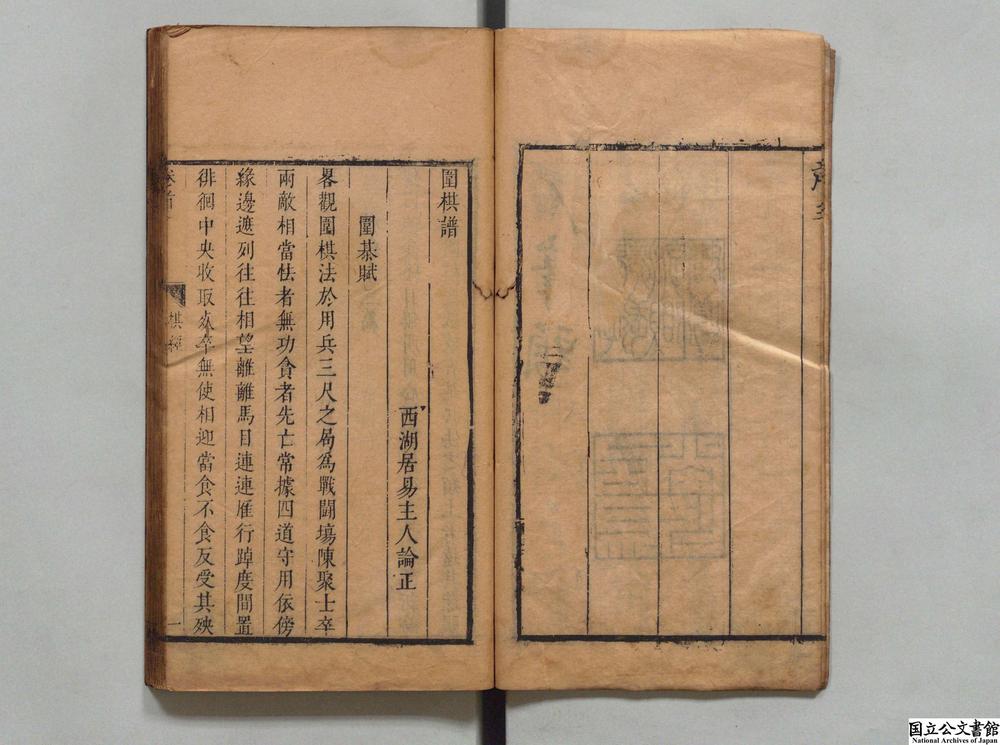 圍棋譜
西湖居易主人論正
圍棊賦
畧觀圍棋法於用兵三尺之局為戰鬪塲陳聚士卒
兩敵相當怯者無功貪者先亡常據四道守用依傍
緣邊遮列往往相望離離馬目連連雁行踔度間置
徘徊中央收取死卒無使相迎當食不食反受其殃
卷首
棋經
一
国立公文書館
National Archives of Japan